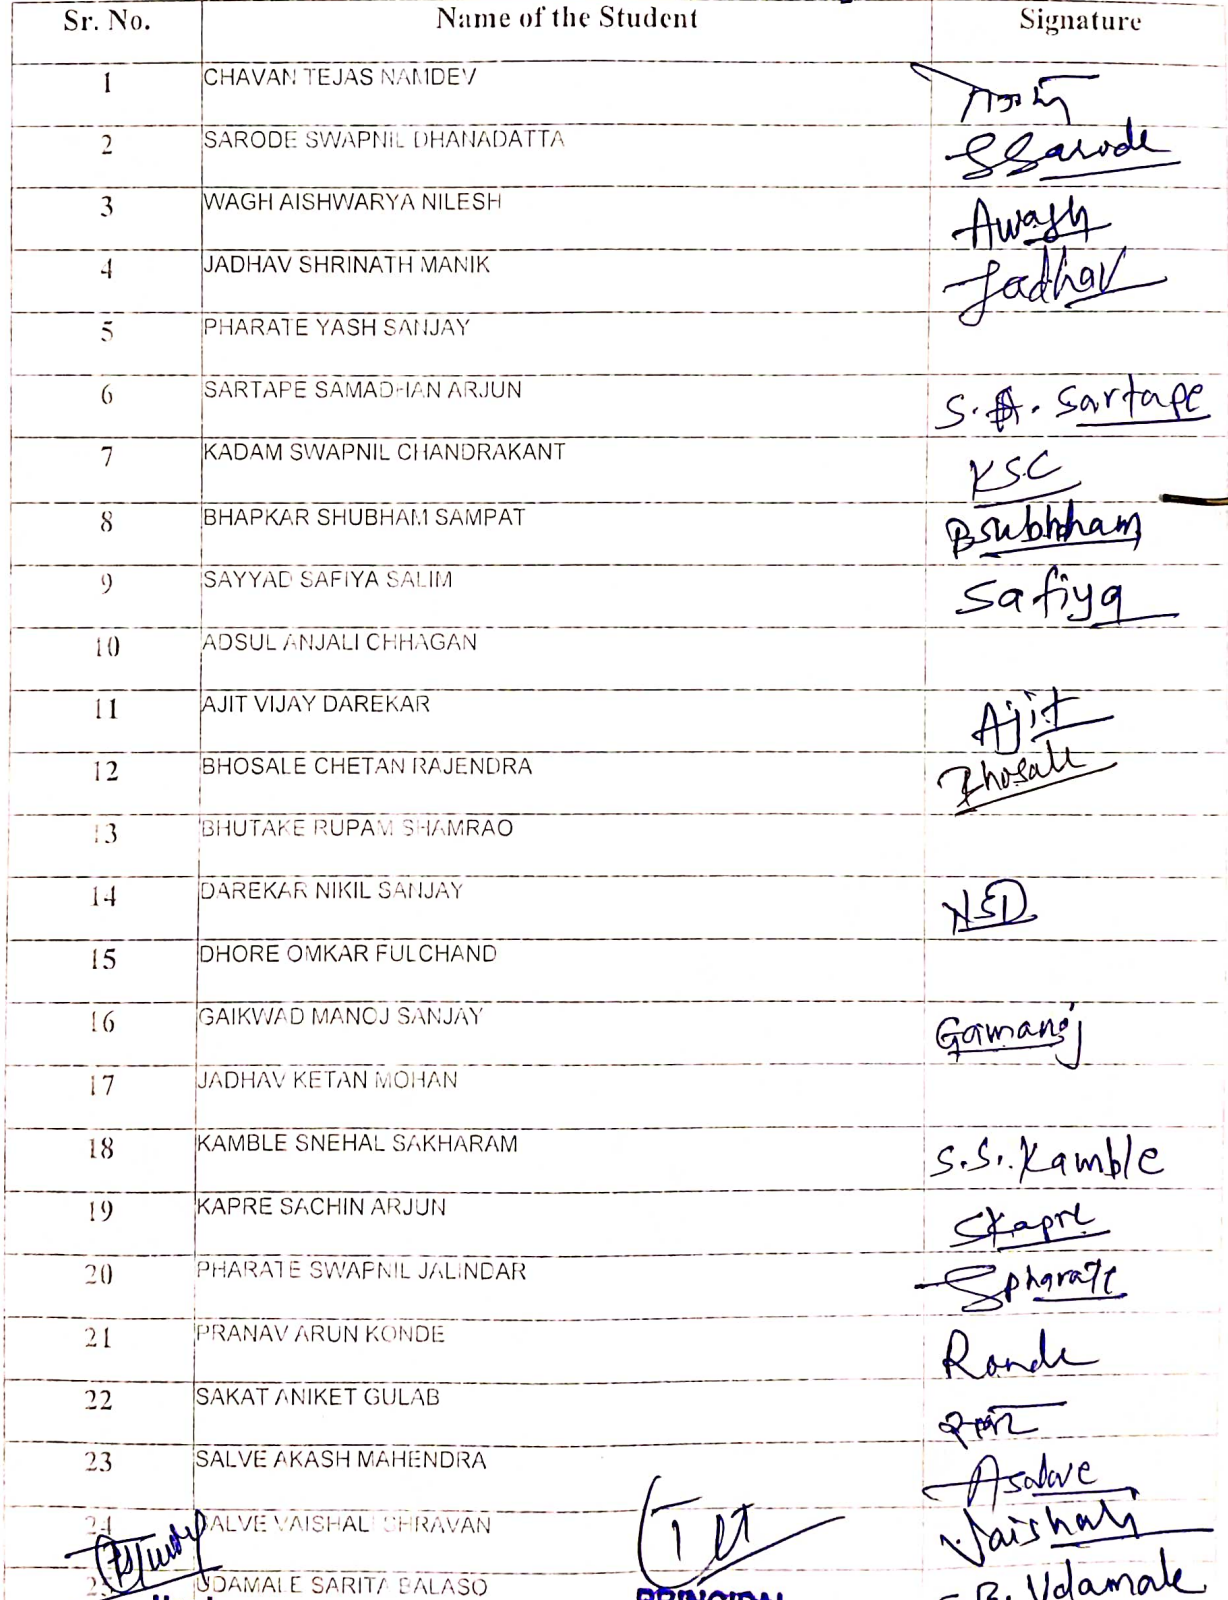 Sr. No. Name of the Student Signature
1 CHAVAN TEJAS NAMDEV
2 SARODE SWAPNIL DHANADATTA SSarode
3 WAGH AISHWARYA NILESH Awagh
4 JADHAV SHRINATH MANIK Jadhav
5 PHARATE YASH SANJAY
6 SARTAPE SAMADHAN ARJUN S.A. Sartape
7 KADAM SWAPNIL CHANDRAKANT KSC
8 BHAPKAR SHUBHAM SAMPAT
9 SAYYAD SAFIYA SALIM Safiya
10 ADSUL ANJALI CHHAGAN
11 AJIT VIJAY DAREKAR Ajit
12 BHOSALE CHETAN RAJENDRA Bhosale
13 BHUTAKE RUPAM SHAMRAO
14 DAREKAR NIKIL SANJAY NSD
15 DHORE OMKAR FULCHAND
16 GAIKWAD MANOJ SANJAY Gamanoj
17 JADHAV KETAN MOHAN
18 KAMBLE SNEHAL SAKHARAM S.S. Kamble
19 KAPRE SACHIN ARJUN SKapre
20 PHARATE SWAPNIL JALINDAR Spharate
21 PRANAV ARUN KONDE
22 SAKAT ANIKET GULAB
23 SALVE AKASH MAHENDRA Asalve
24 SALVE VAISHALI SHRAVAN Vaishali
25 UDAMALE SARITA BALASO Udamale
PRINCIPAL